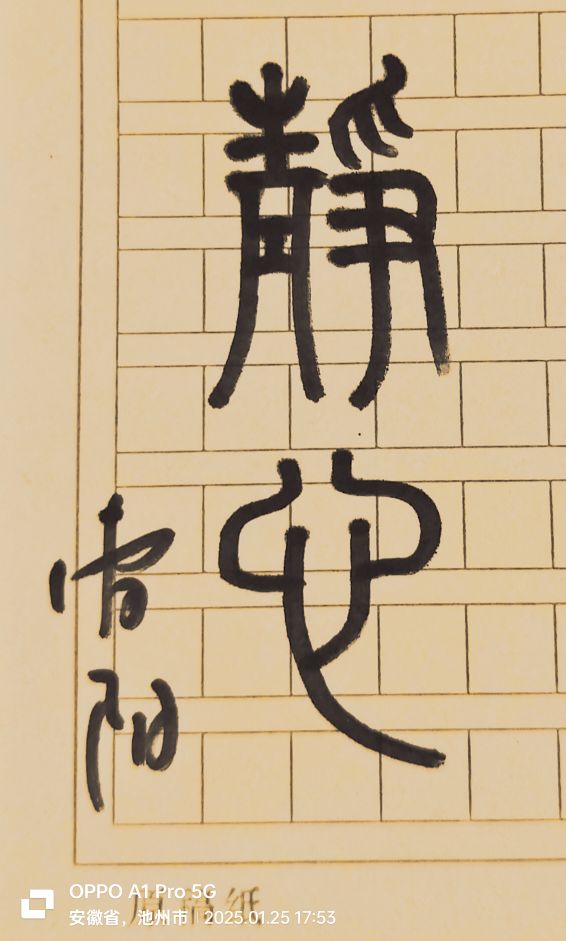 靜心
阳
原稿纸
OPPO A1 Pro 5G
安徽省，池州市 | 2025.01.25 17:53